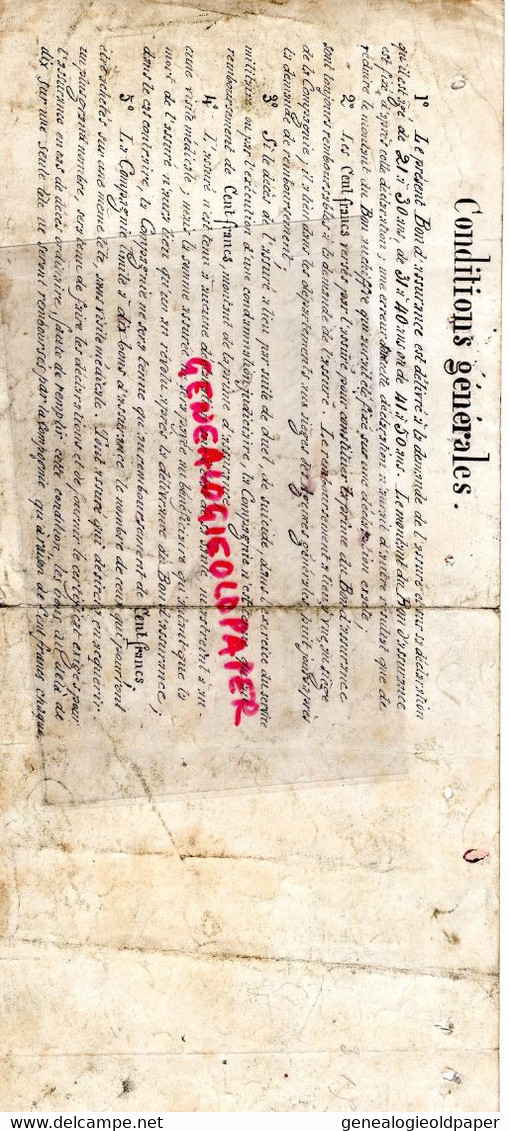 Conditions générales.
1º Le présent Bon d'assurance est délivré à la demande de l'assuré et sur sa déclaration
qu'il est âgé de 21 à 30 ans, de 31 à 40 ans ou de 41 à 50 ans. Le montant du Bon d'assurance
est fixé d'après cette déclaration; une erreur dans cette déclaration n'aurait d'autre résultat que de
réduire le montant du Bon au chiffre qui aurait été fixé sur une déclaration exacte;
2º Les Cent francs versés par l'assuré pour constituer la prime du Bon d'assurance
sont toujours remboursables à la demande de l'assuré. Le remboursement a lieu à vue, au siège
de la Compagnie; il a lieu dans les départements aux sièges des agences générales, huit jours après
la demande de remboursement;
3º Si le décès de l'assuré a lieu par suite de duel, de suicide, dans le service
militaire ou par l'exécution d'une condamnation judiciaire, la Compagnie n'est tenue qu'au
remboursement de Cent francs, montant de la prime d'assurance
4º L'assuré n'est tenu à aucune déclaration
cune visite médicale, mais la somme assurée au bénéficiaire qu'autant que la
mort de l'assuré n'aura lieu que un an révolu après la délivrance du Bon d'assurance;
dans le cas contraire, la Compagnie ne sera tenue qu'au remboursement de Cent francs
5º La Compagnie limite à dix bons d'assurance le nombre de ceux qui pourront
être achetés sur une même tête, sans visite médicale. Tout assuré qui désirera en acquérir
un plus grand nombre, sera tenu de faire les déclarations et de fournir le certificat exigés pour
l'assurance en cas de décès ordinaire; faute de remplir cette condition, les bons, au delà de
dix sur une seule tête ne seront remboursés par la Compagnie qu'à raison de Cent francs chaque
GENEALOGIEOLDPAPER
delcampe.net
genealogieoldpaper